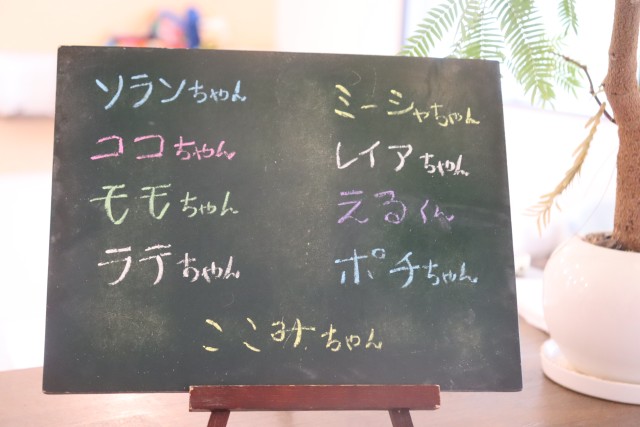 ソランちゃん
ココちゃん
モモちゃん
ラテちゃん
ミーシャちゃん
レイアちゃん
えるくん
ポチちゃん
ここみちゃん